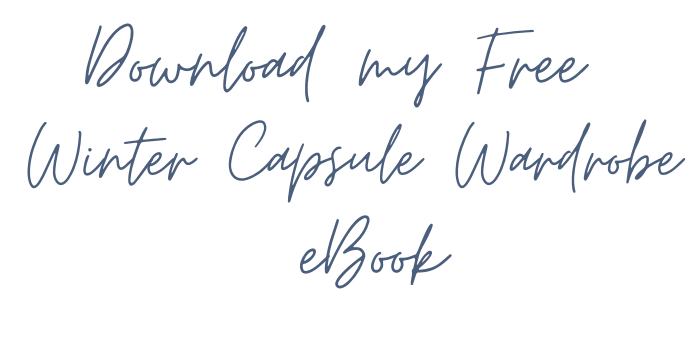 Download my Free
Winter Capsule Wardrobe
eBook